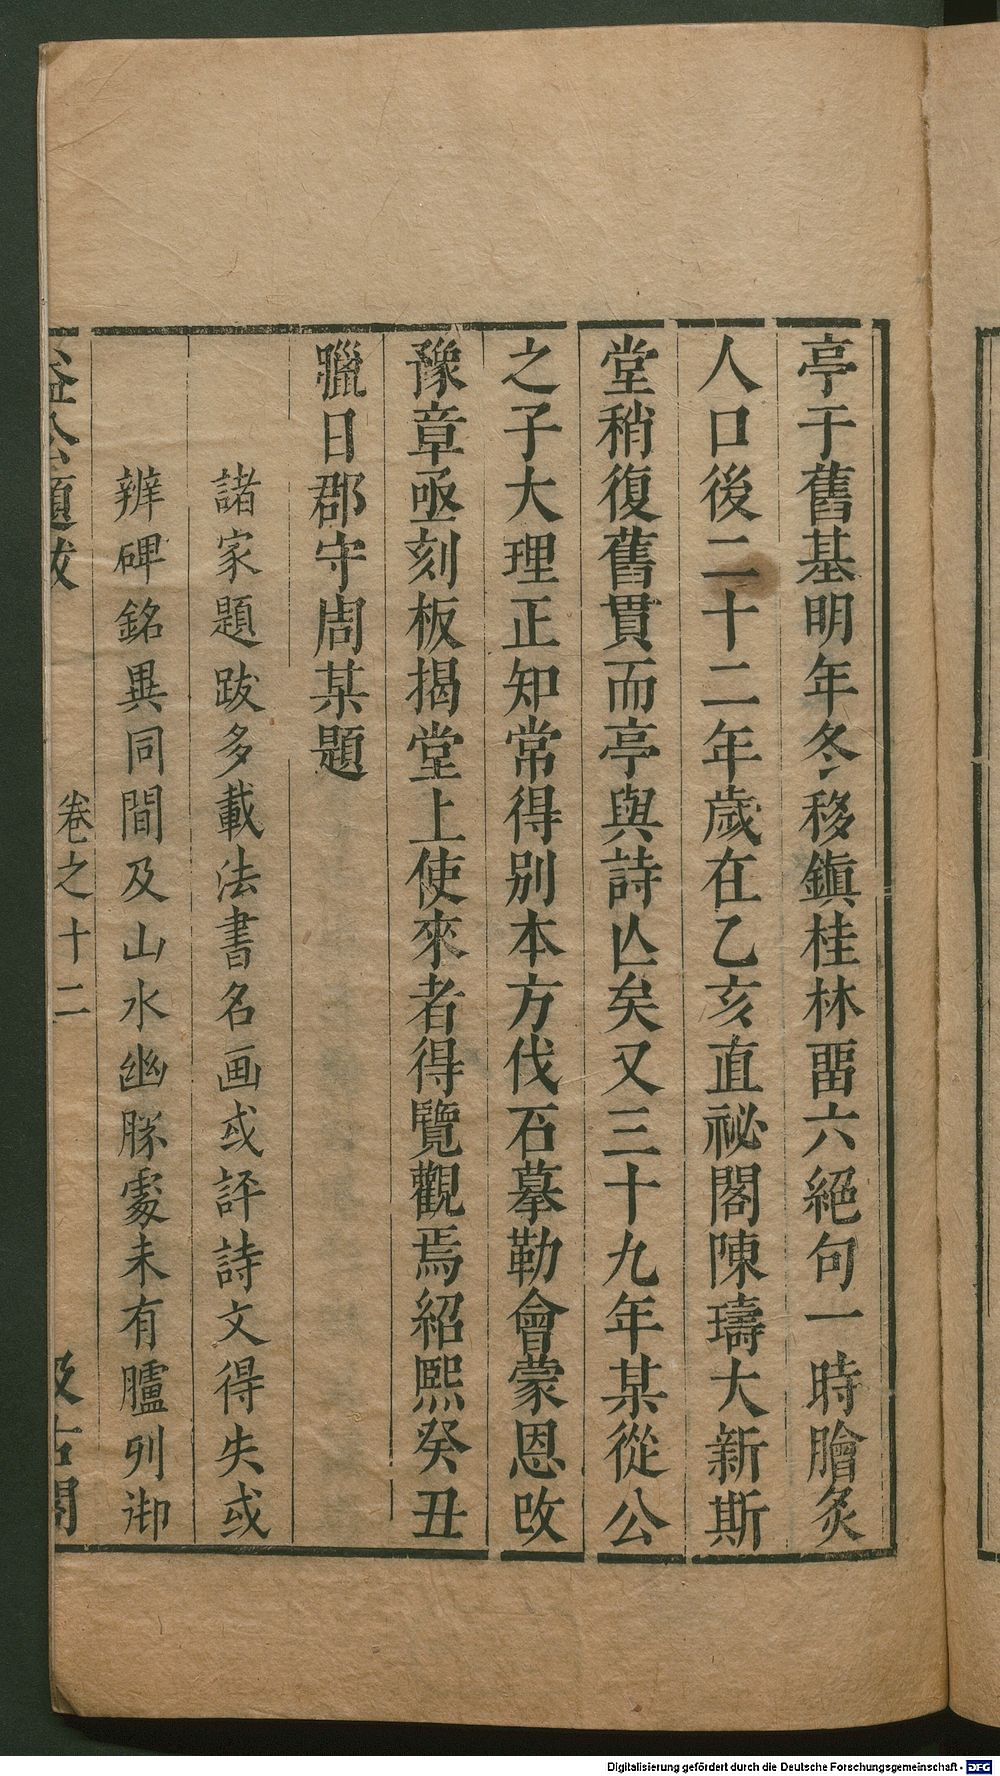 亭于舊基明年冬移鎮桂林畱六絕句一時膾炙
人口後二十二年歲在乙亥直祕閣陳璹大新斯
堂稍復舊貫而亭與詩亾矣又三十九年某從公
之子大理正知常得别本方伐石摹勒會蒙恩改
豫章亟刻板揭堂上使來者得覽觀焉紹熙癸丑
臘日郡守周某題
諸家題跋多載法書名画或評詩文得失或
辨碑銘異同間及山水幽勝處未有臚列御
益公題跋 卷之十二 汲古閣
Digitalisierung gefördert durch die Deutsche Forschungsgemeinschaft - DFG